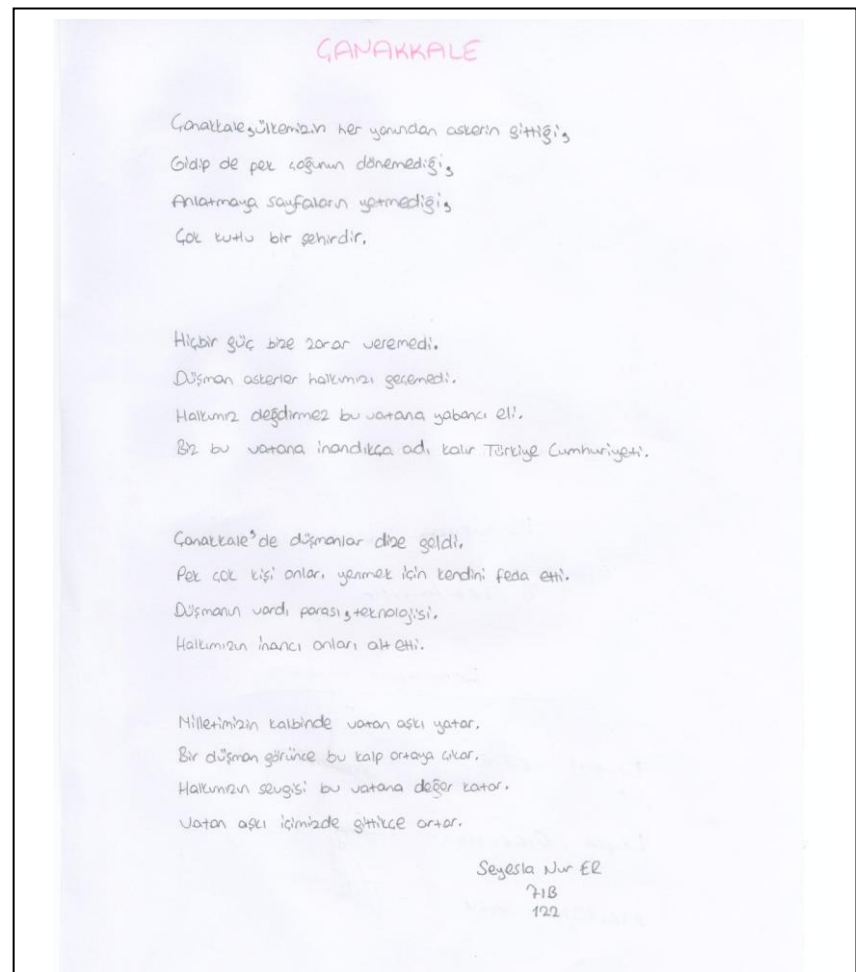 ÇANAKKALE
Çanakkale, ülkemizin her yanından askerin gittiği,
Gidip de pek çoğunun dönemediği,
Anlatmaya sayfaların yetmediği,
Çok kutlu bir şehirdir.
Hiçbir güç bize zarar veremedi.
Düşman askerler halkımızı geçemedi.
Halkımız değdirmez bu vatana yabancı eli.
Biz bu vatana inandıkça adı kalır Türkiye Cumhuriyeti.
Çanakkale'de düşmanlar dize geldi.
Pek çok kişi onları yenmek için kendini feda etti.
Düşmanın vardı parası, teknolojisi.
Halkımızın inancı onları alt etti.
Milletimizin kalbinde vatan aşkı yatar.
Bir düşman görünce bu kalp ortaya çıkar.
Halkımızın sevgisi bu vatana değer katar.
Vatan aşkı içimizde gittikçe artar.
Nur ER
7/B
122